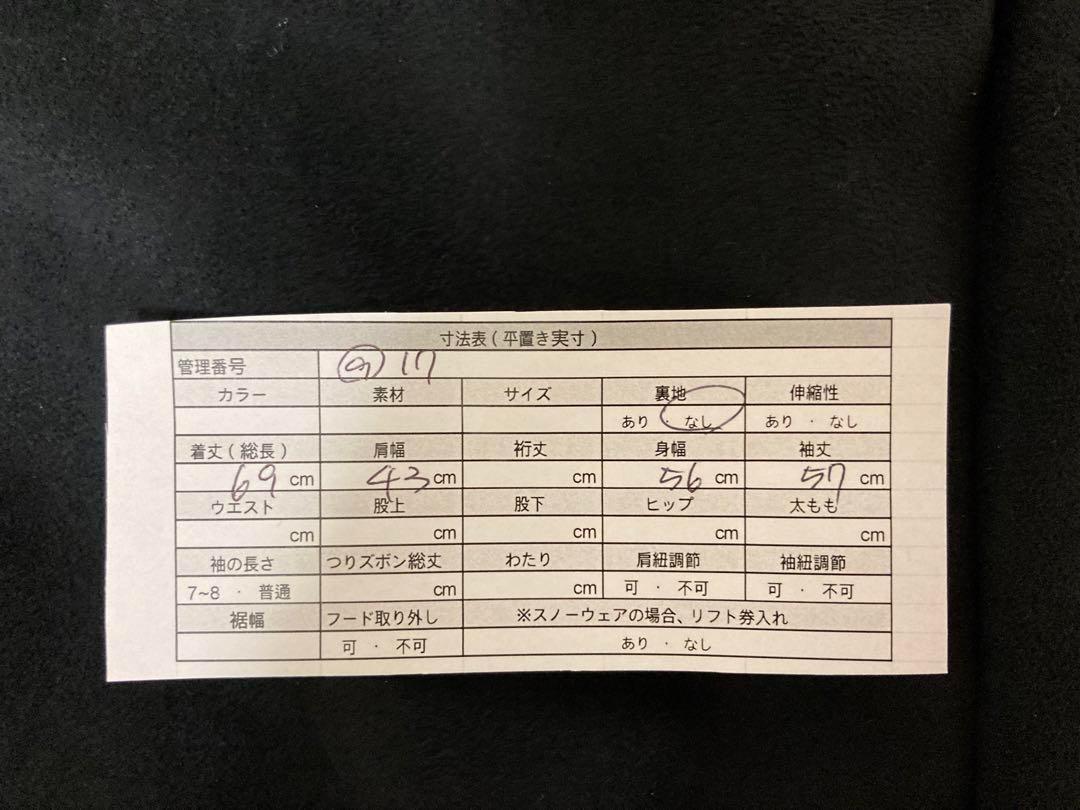 寸法表(平置き実寸)
管理番号 17
カラー 素材 サイズ 裏地 伸縮性
あり ・ なし あり ・ なし
着丈(総長) 肩幅 裄丈 身幅 袖丈
69 cm 43 cm cm 56 cm 57 cm
ウエスト 股上 股下 ヒップ 太もも
cm cm cm cm cm
袖の長さ つりズボン総丈 わたり 肩紐調節 袖紐調節
7~8 ・ 普通 cm cm 可 ・ 不可 可 ・ 不可
裾幅 フード取り外し ※スノーウェアの場合、リフト券入れ
可 ・ 不可 あり ・ なし